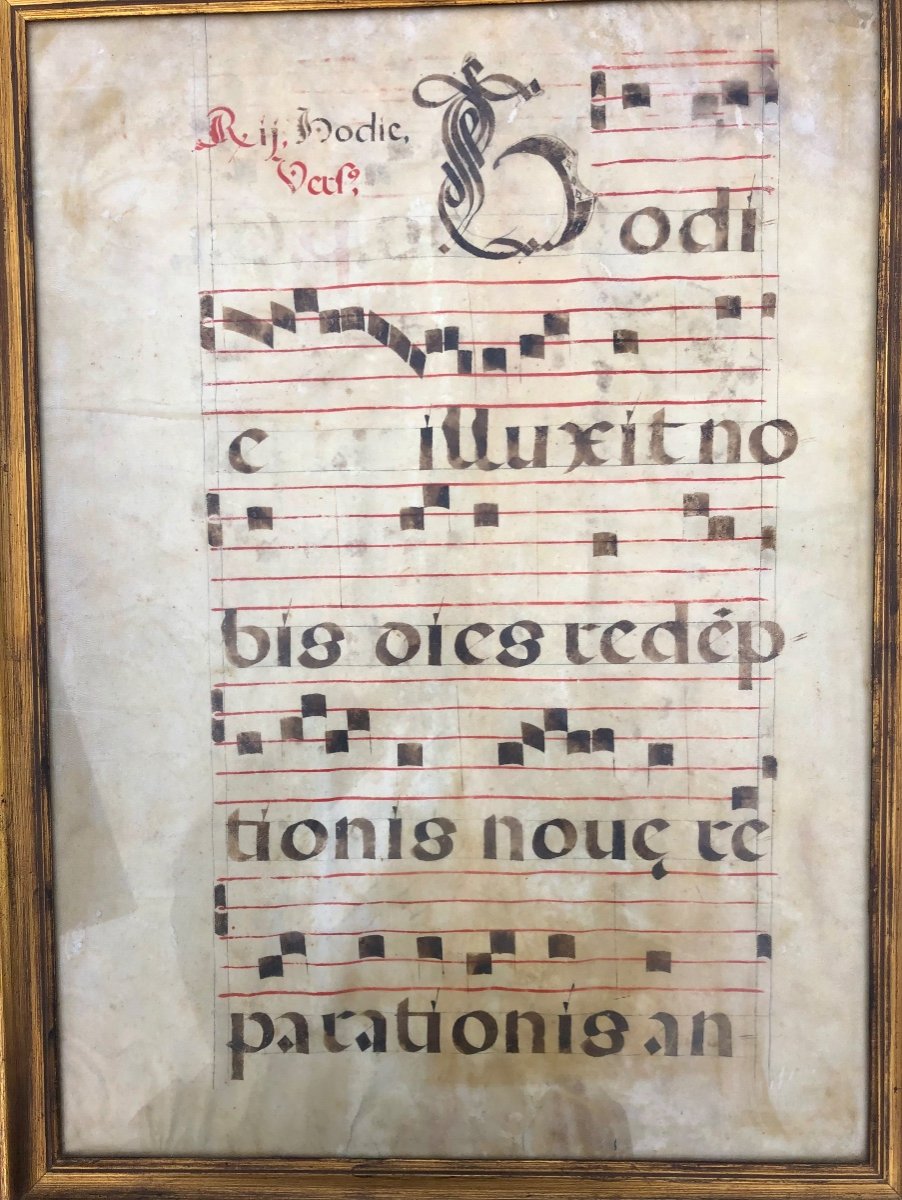 R ij, Hodie,
Vers⁹
Hodi
e illuxit no
bis dies redēp
tionis nouę re
parationis an